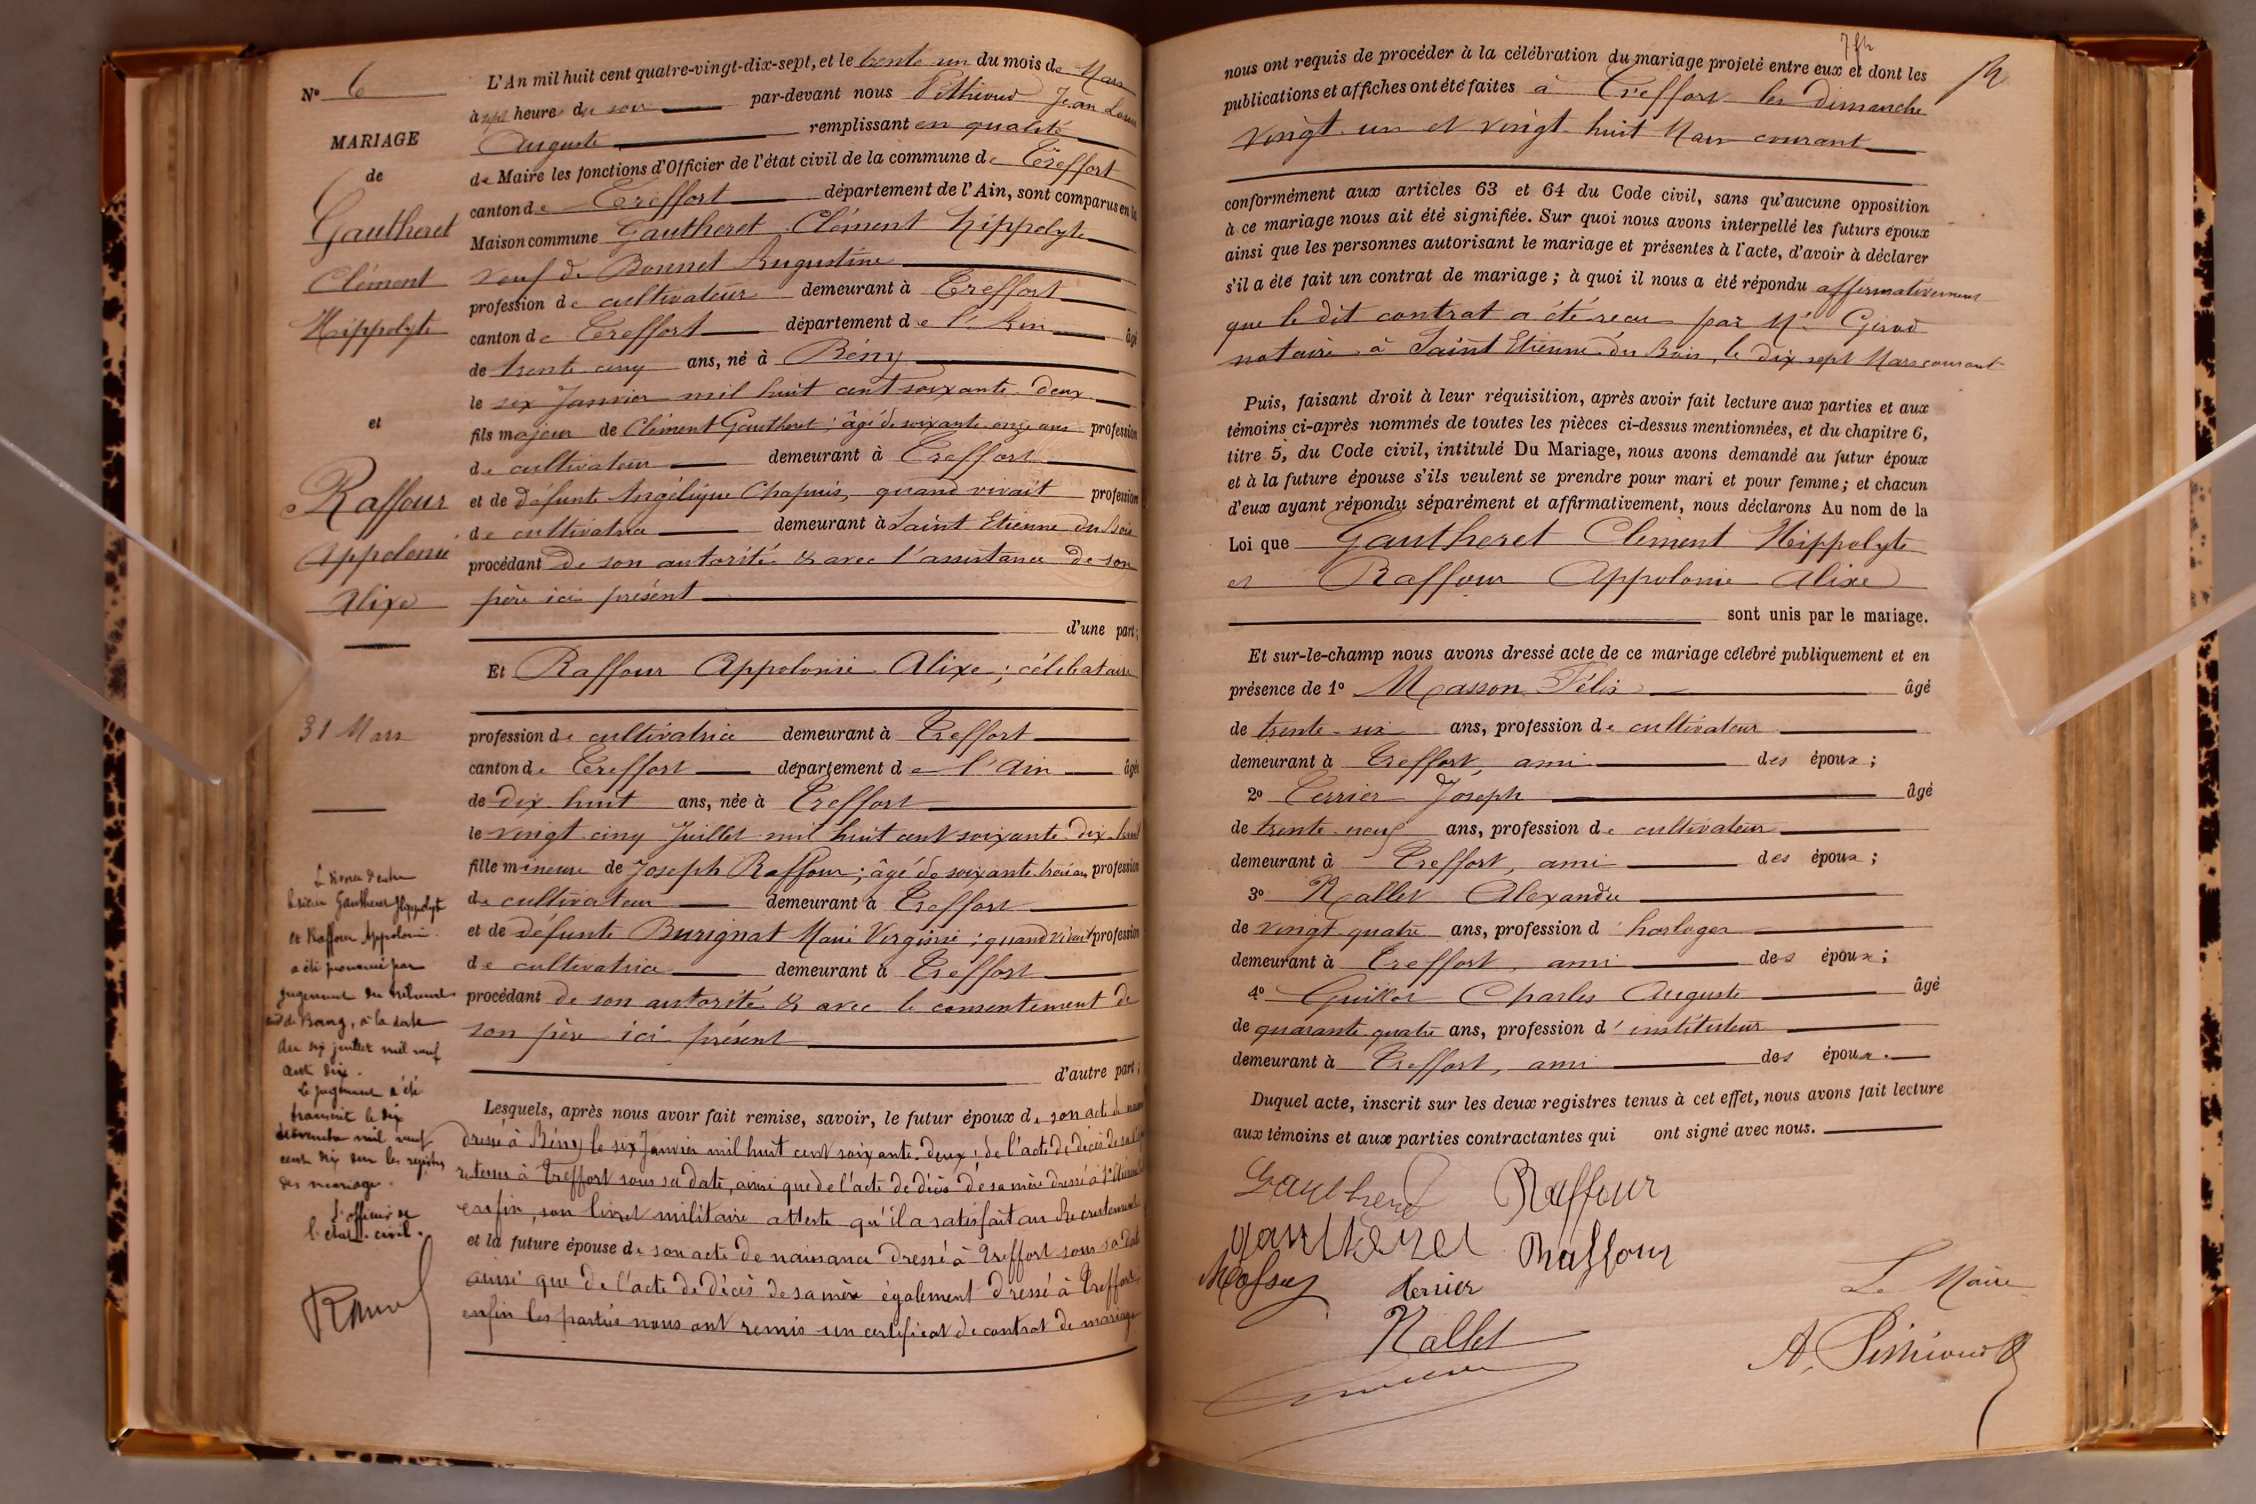 N° 6
MARIAGE
de
Gautheret
Clément
Hippolyte
et
Raffour
Appolonie
Alixe
31 Mars
Le divorce d'entre
le sieur Gautheret Hippolyte
et Raffour Appolonie
a été prononcé par
jugement du tribunal
civil de Bourg, à la date
du six juillet mil neuf
cent dix.
Le jugement a été
transcrit le dix
novembre mil neuf
cent dix sur les registres
des mariages.
L'officier de
l'état civil.
L'An mil huit cent quatre-vingt-dix-sept, et le trente un du mois de Mars
à sept heure du soir par-devant nous Pithioud Jean Louis
Auguste remplissant en qualité
de Maire les fonctions d'Officier de l'état civil de la commune de Treffort
canton de Treffort département de l'Ain, sont comparus en la
Maison commune Gautheret Clément Hippolyte
veuf de Bonnet Augustine
profession de cultivateur demeurant à Treffort
canton de Treffort département de l'Ain âgé
de trente cinq ans, né à Bény
le six Janvier mil huit cent soixante-deux
fils majeur de Clément Gautheret; âgé de soixante onze ans profession
de cultivateur demeurant à Treffort
et de défunte Angélique Chapuis, quand vivait profession
de cultivatrice demeurant à Saint Etienne du Bois
procédant de son autorité & avec l'assistance de son
père ici présent
d'une part;
Et Raffour Appolonie Alixe; célibataire
profession de cultivatrice demeurant à Treffort
canton de Treffort département de l'Ain âgée
de dix-huit ans, née à Treffort
le vingt cinq Juillet mil huit cent soixante-dix-huit
fille mineure de Joseph Raffour; âgé de soixante trois ans profession
de cultivateur demeurant à Treffort
et de défunte Burignat Marie Virginie; quand vivait profession
de cultivatrice demeurant à Treffort
procédant de son autorité & avec le consentement de
son père ici présent
d'autre part;
Lesquels, après nous avoir fait remise, savoir, le futur époux de son acte de
dressé à Bény le six Janvier mil huit cent soixante-deux; de l'acte de décès de sa
retenu à Treffort sous sa date, ainsi que de l'acte de décès de sa mère dressé à St Etienne
enfin, son livret militaire atteste qu'il a satisfait au Recrutement
et la future épouse de son acte de naissance dressé à Treffort sous sa date
ainsi que de l'acte de décès de sa mère également dressé à Treffort;
enfin les parties nous ont remis un certificat de contrat de mariage
nous ont requis de procéder à la célébration du mariage projeté entre eux et dont les
publications et affiches ont été faites à Treffort les dimanche
vingt-un et vingt-huit Mars courant
conformément aux articles 63 et 64 du Code civil, sans qu'aucune opposition
à ce mariage nous ait été signifiée. Sur quoi nous avons interpellé les futurs époux
ainsi que les personnes autorisant le mariage et présentes à l'acte, d'avoir à déclarer
s'il a été fait un contrat de mariage; à quoi il nous a été répondu affirmativement
que le dit contrat a été reçu par Me Girod
notaire à Saint Etienne du Bois, le dix sept Mars courant
Puis, faisant droit à leur réquisition, après avoir fait lecture aux parties et aux
témoins ci-après nommés de toutes les pièces ci-dessus mentionnées, et du chapitre 6,
titre 5, du Code civil, intitulé Du Mariage, nous avons demandé au futur époux
et à la future épouse s'ils veulent se prendre pour mari et pour femme; et chacun
d'eux ayant répondu séparément et affirmativement, nous déclarons Au nom de la
Loi que Gautheret Clément Hippolyte
et Raffour Appolonie Alixe
sont unis par le mariage.
Et sur-le-champ nous avons dressé acte de ce mariage célébré publiquement et en
présence de 1° Masson Félix âgé
de trente-six ans, profession de cultivateur
demeurant à Treffort, ami des époux;
2° Terrier Joseph âgé
de trente-neuf ans, profession de cultivateur
demeurant à Treffort, ami des époux;
3° Nallet Alexandre
de vingt quatre ans, profession d'horloger
demeurant à Treffort, ami des époux;
4° Guillot Charles Auguste âgé
de quarante quatre ans, profession d'instituteur
demeurant à Treffort, ami des époux.
Duquel acte, inscrit sur les deux registres tenus à cet effet, nous avons fait lecture
aux témoins et aux parties contractantes qui ont signé avec nous.
Gautheret Raffour
gautheret Raffour
Terrier
Nallet
Le Maire
A. Pithioud